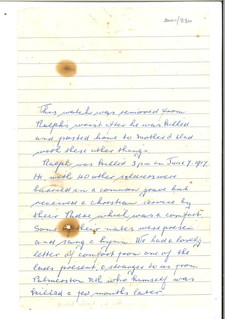 This watch was removed from
Ralph's wrist after he was killed
and posted home to Mother & Dad
with these other things.
Ralph was killed 3 pm on June 7. 1917.
He, with 40 other soldiers were
buried in a common grave but
received a christian service by
their Padre which was a comfort.
Some of their mates were present
and sang a hymn. We had a lovely
letter of comfort from one of the
lads present, a stranger to us from
Palmerston Nth who himself was
killed a few months later